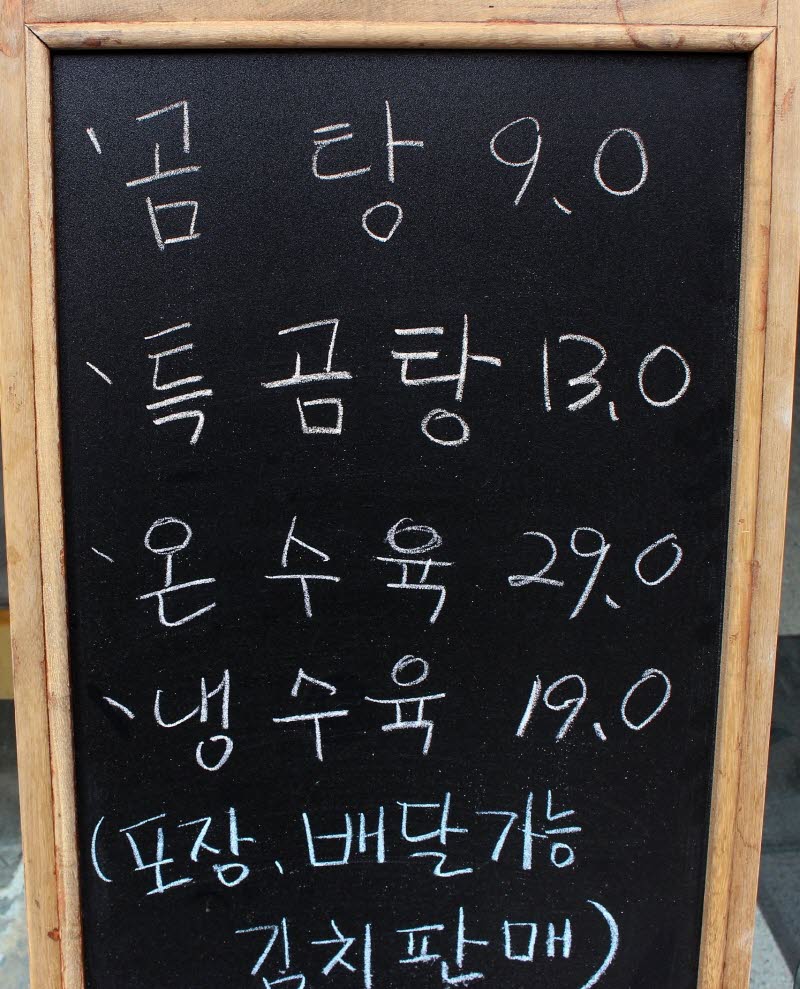 、곰 탕 9.0
、특 곰 탕 13.0
、온 수 육 29.0
、냉 수 육 19.0
(포장、배달가능
김치판매)